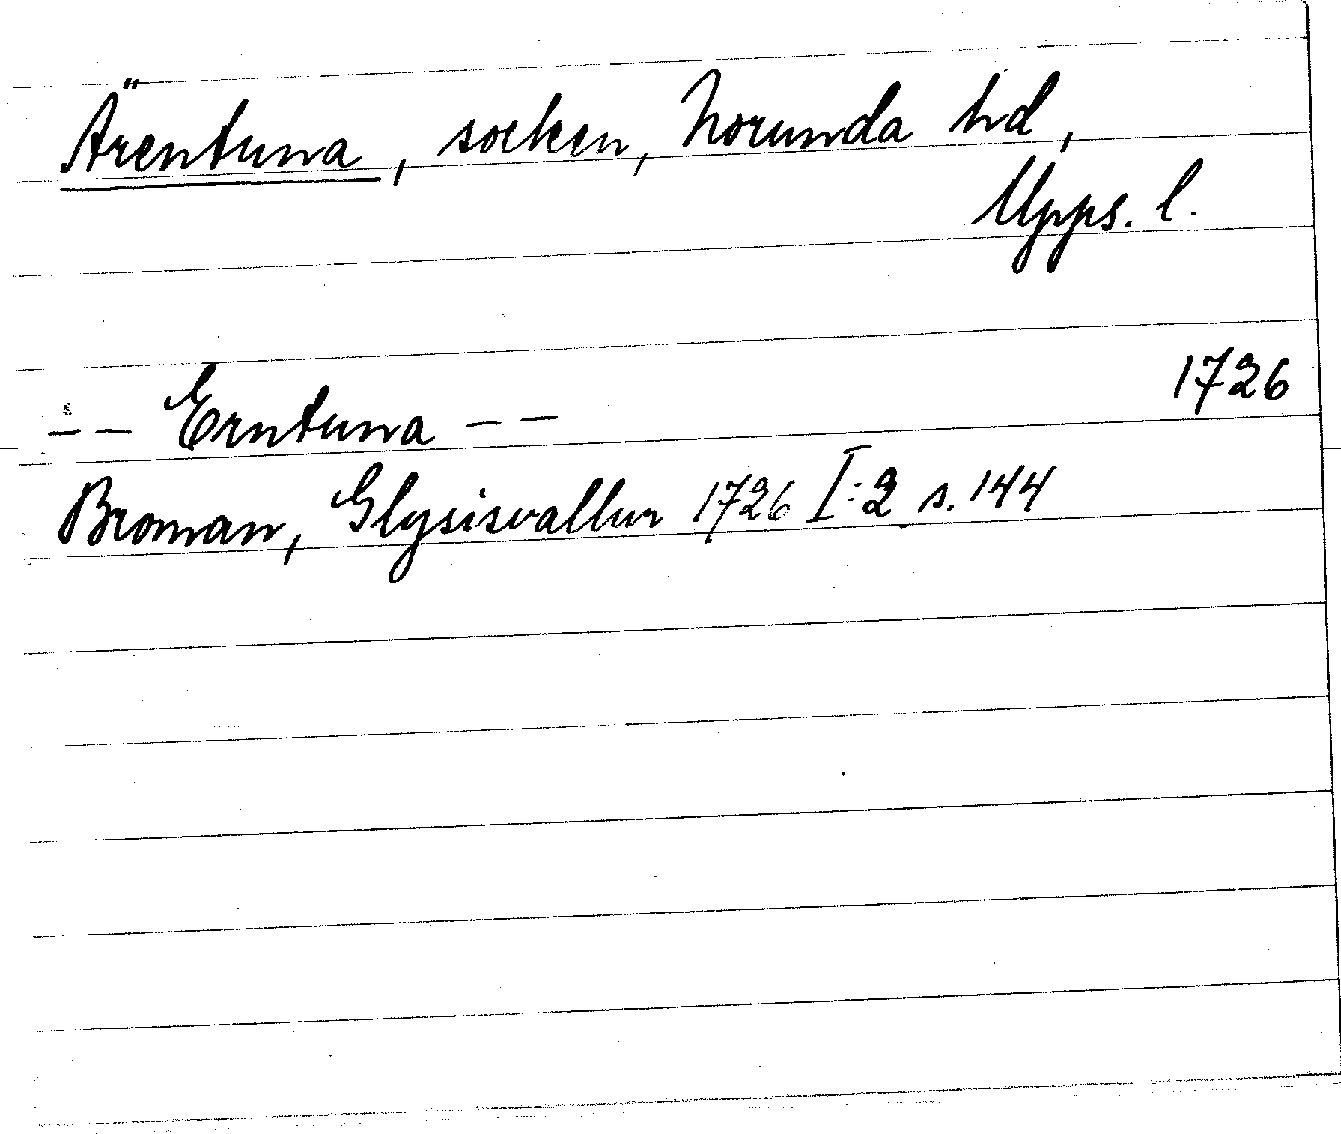 Ärentuna, socken, Norunda hd,
Upps. l.
-- Erntuna -- 1726
Broman, Glysisvallur 1726 I:2 s. 144